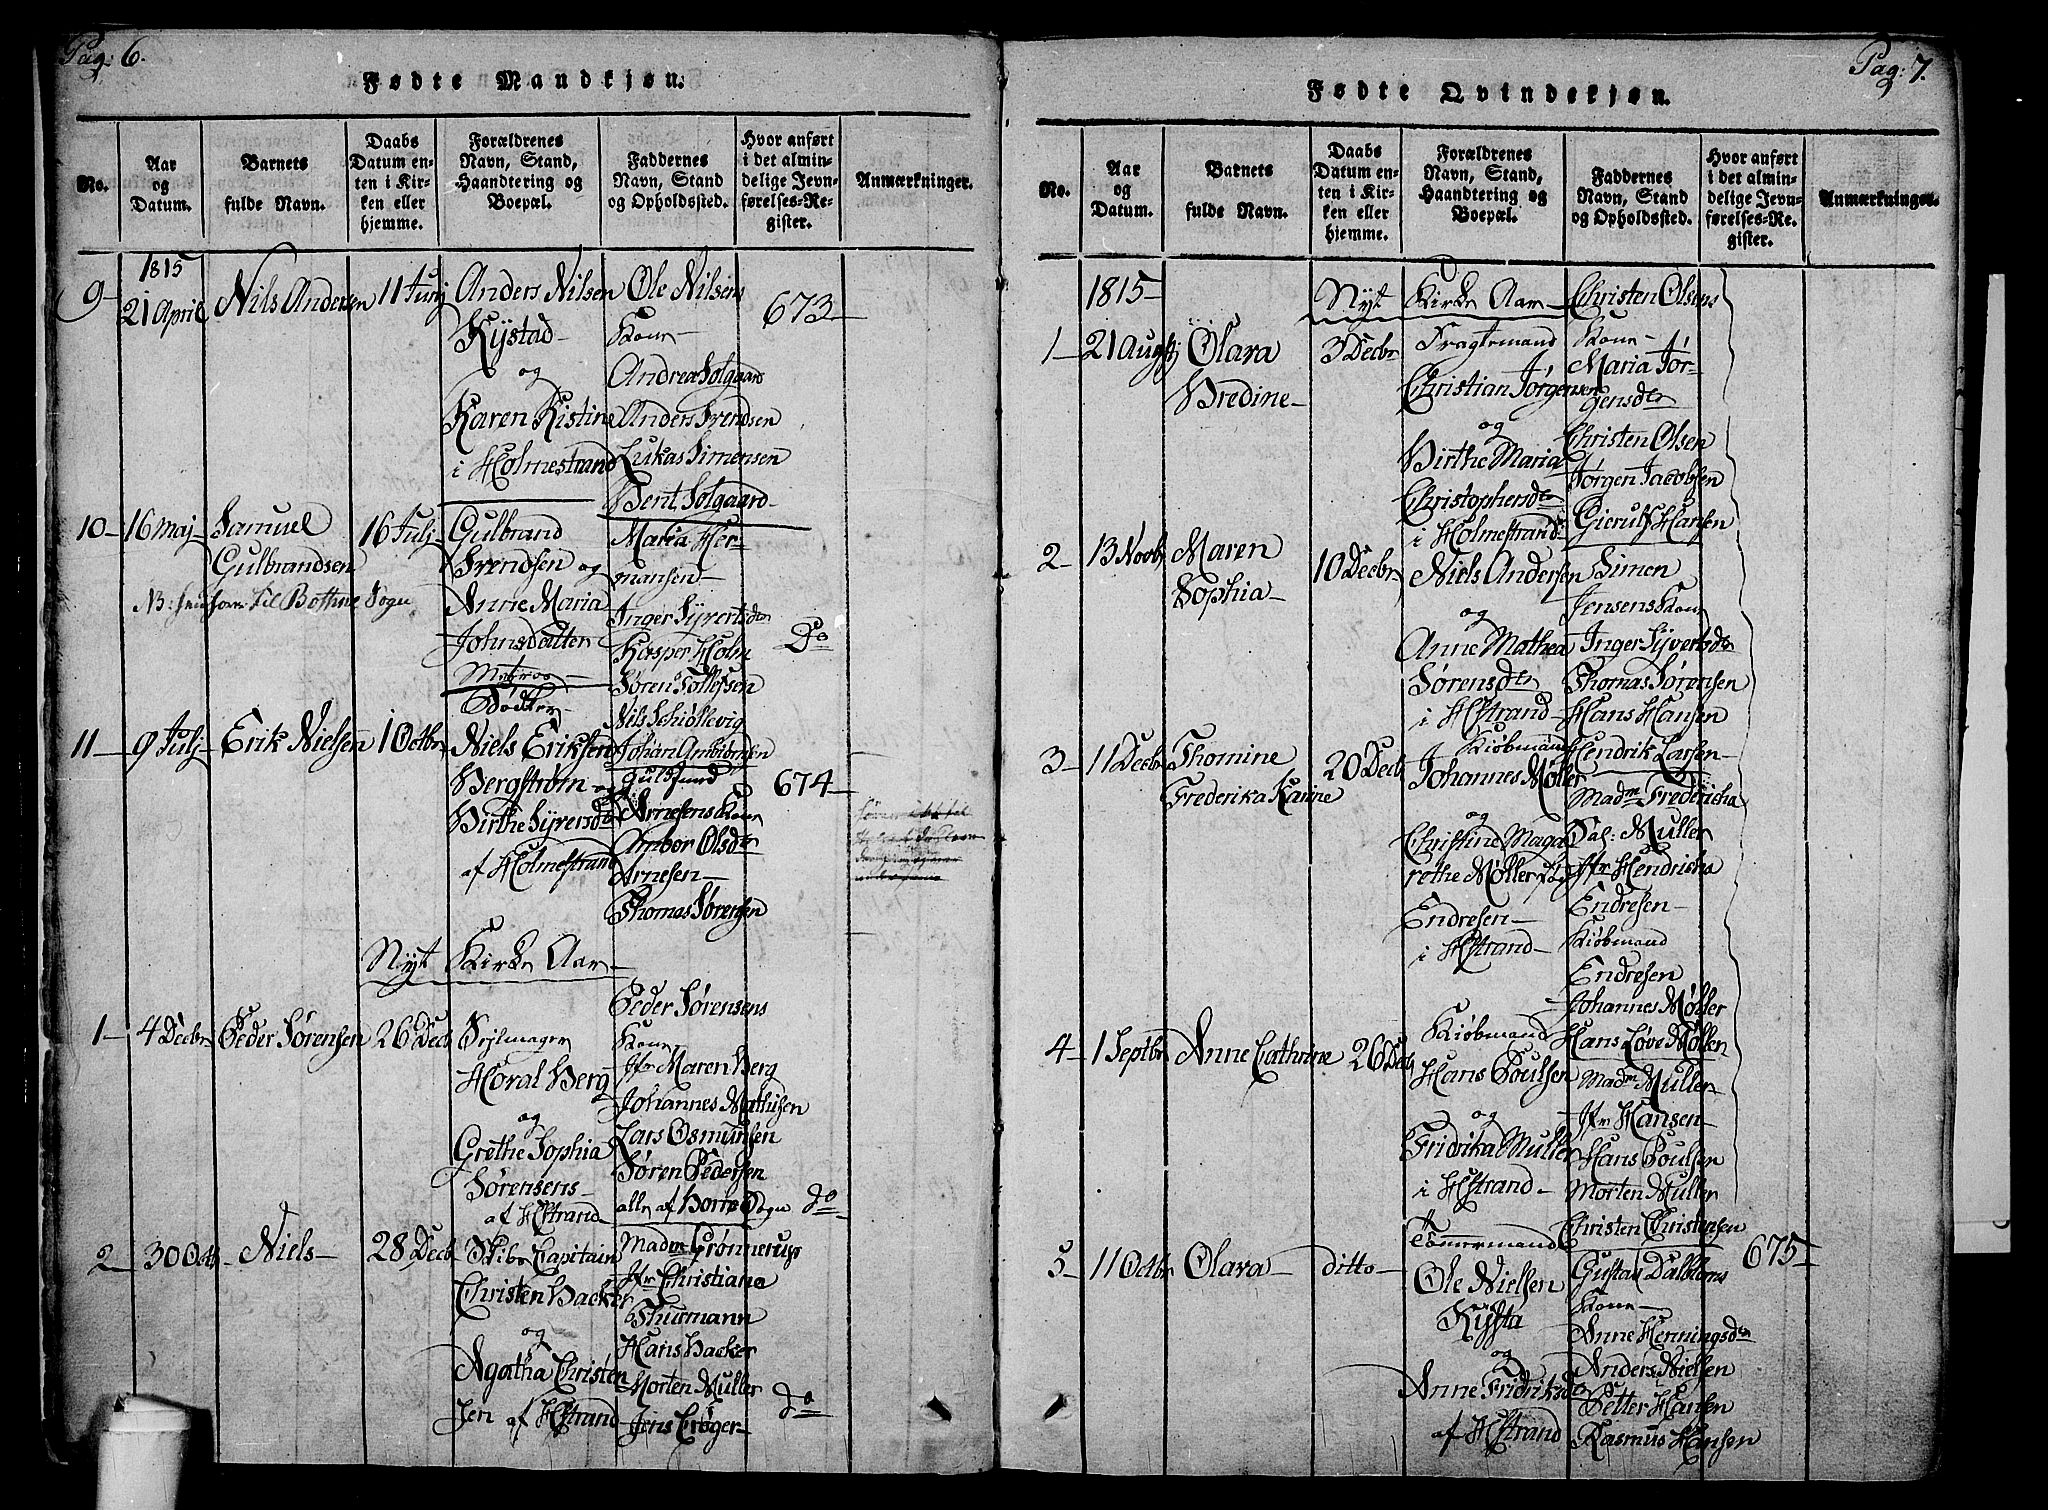 Pag: 6.
Fødte Mandkjøn.
No.
Aar
og
Datum.
Barnets
fulde Navn.
Daabs
Datum en-
ten i Kir-
ken eller
hjemme.
Forældrenes
Navn, Stand,
Haandtering og
Boepæl.
Faddernes
Navn, Stand
og Opholdssted.
Hvor anført
i det almin-
delige Jevn-
førelses-Re-
gister.
Anmærkninger.
9-
1815
21 April
Nils Andersen
11 Junj
Anders Nilsen
Kystad-
og
Karen Kistine
i Holmestrand
Ole Nilsens
Kone-
Andrea Solgaard
Anders Svendsen
Lukas Simensen
Bent Solgaard-
673-
10-
16 Maj-
Samuel
Gulbrandsen
16 Julj-
Gulbrand
Svendsen og
Anne Maria
Johnsdatter
Matros-
Maria Her-
mansen-
Inger Syvertsdr
Kasper Holm
Søren Tollefsen
Nils Schiøllevig
Do
NB: til Bottne Sogn
11-
9 Julj-
Erik Nielsen
1 Octbr
Bødker
Niels Eriksen
Bergstrøm og
Birthe Syversdr
af Holmestrand
Johan
Guldsund
Arnesens Kone
Anbor Olsdr
Arnesen-
Thomas Sørensen
674-
Nyt Kirke Aar-
1-
4 Decbr
Peder Sørensen
26 Decb
Sejlmager
Horal Berg
og
Grethe Sophia
Sørensens-
af HStrand-
Peder Sørensens
Kone
Jfr Maren Berg
Johannes Mathisen
Lars Osmunsen
Søren Pedersen
alle af Borre Sogn
do
2-
30 Octb
Niels-
28 Decb
Skibs Capitain
Christen Backer
og
Agatha Christen
sen af HStrand-
Madm Grønnerups
Jfr Christiana
Thurmann
Hans Backer
Morten Muller
Jens Crøger-
do
Pag: 7.
Fødte Qvindekjøn.
No.
Aar
og
Datum.
Barnets
fulde Navn.
Daabs
Datum en-
ten i Kir-
ken eller
hjemme.
Forældrenes
Navn, Stand,
Haandtering og
Boepæl.
Faddernes
Navn, Stand
og Opholdssted.
Hvor anført
i det almin-
delige Jevn-
førelses-Re-
gister.
Anmærkninger.
1815-
Nyt Kirke Aar-
1-
21 Augstj
Olara
Bredine-
3 Decbr
Fragtemand
Christian Jørgensen
og
Birthe Maria
Christophersdr
i Holmestrand-
Christen Olsens
Kone-
Maria Jør-
gensdr
Christen Olsen
Jørgen Jacobsen
Gierulf Hansen
2-
13 Novb
Maren
Sophia-
10 Decbr
Niels Andersen
og
Anne Mathea
Sørensdr
i HStrand-
Simen
Jensens Kone
Inger Syvertsdr
Thomas Sørensen
Hans Hansen
Hendrik Larsen-
3-
11 Decbr
Thomine
Frederika Kanne
20 Decb
Kiøbmand
Johannes Møller
og
Christine Maga
rethe Møller født
Endresen-
i HStrand-
Madm Fredericha
Sal: Muller
Jfr Hendricha
Endresen-
Kiøbmand
Endresen
Johannes Møller
Hans Løve Møller
4-
1 Septbr
Anne Cathrine
26 Decb
Kiøbmand
Hans Poulsen
og
Fridrika Muller
i HStrand-
Madm Muller
Jfr Hansen-
Hans Poulsen
Morten Muller
Christen Christensen
5-
11 Octbr
Olara-
ditto-
Tømmermand
Ole Nielsen
Kysta
og
Anne Fridriksdr
af HStrand
Gustav Dalbloms
Kone-
Anne Henningsdr
Anders Nielsen
Petter Hansen
Rasmus Hansen
675-